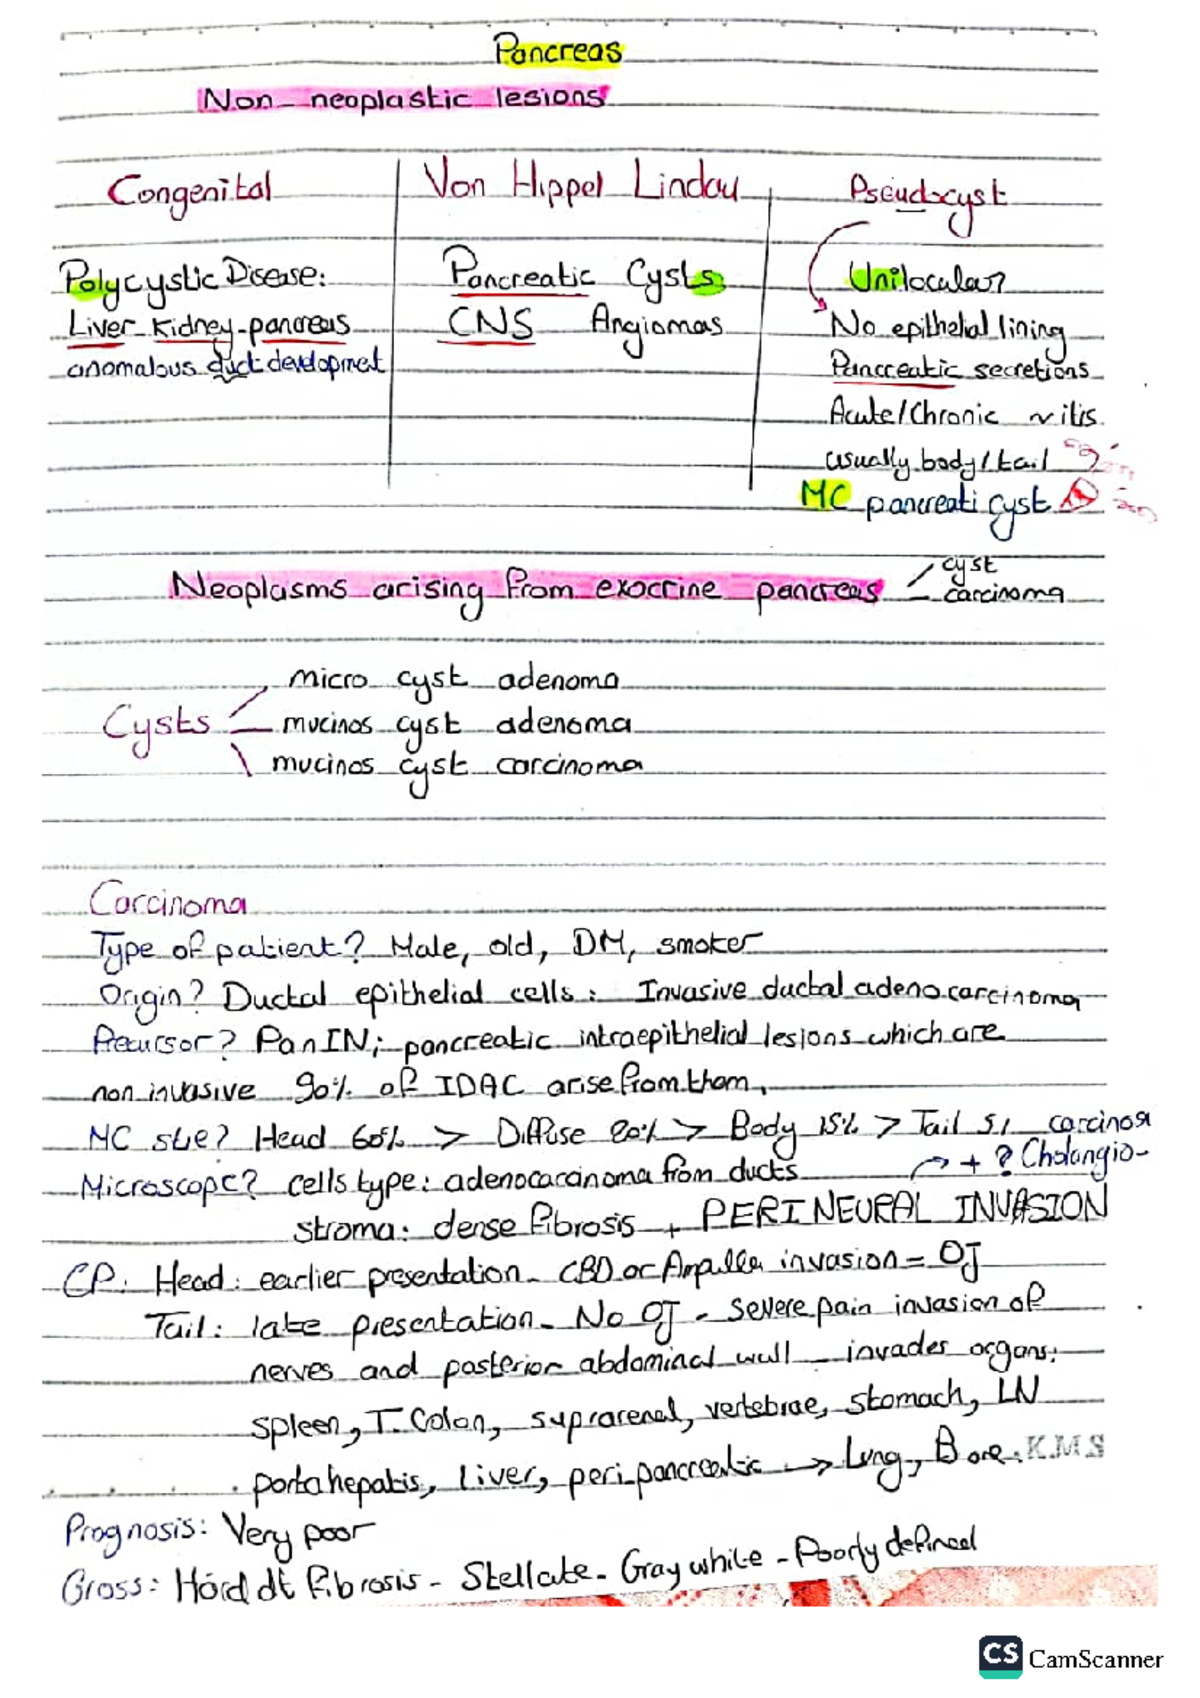 Pancreas
Non-neoplastic lesions
Congenital
Polycystic Disease:
Liver-kidney-pancreas
anomalous duct development
Von Hippel Lindau
Pancreatic Cysts
CNS Angiomas
Pseudocyst
Unilocular
No epithelial lining
Pancreatic secretions
Acute/Chronic ~itis
usually body/tail
MC pancreati cyst
Neoplasms arising from exocrine pancreas
cyst
carcinoma
Cysts
micro cyst adenoma
mucinos cyst adenoma
mucinos cyst carcinoma
Carcinoma
Type of patient? Male, old, DM, smoker
Origin? Ductal epithelial cells: Invasive ductal adenocarcinoma
Precursor? PanIN; pancreatic intraepithelial lesions which are
non invasive 90% of IDAC arise from them.
MC site? Head 60% > Diffuse 20% > Body 15% > Tail 5%
Microscope? cells type: adenocarcinoma from ducts → + ? Cholangio-
carcinoma
stroma: dense fibrosis + PERINEURAL INVASION
CP: Head: earlier presentation - CBD or Ampulla invasion = OJ
Tail: late presentation - No OJ - severe pain invasion of
nerves and posterior abdominal wall - invades organs:
spleen, T. Colon, suprarenal, vertebrae, stomach, LN
portahepatis, liver, peri-pancreatic → Lung, Bone. K.M.S
Prognosis: Very poor
Gross: Hard dt fibrosis - Stellate - Gray white - Poorly defined
CS CamScanner